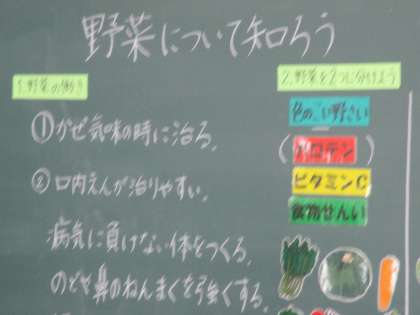 野菜について知ろう
1.野菜の働き
①かぜ気味の時に治る。
②口内えんが治りやすい。
病気に負けない体をつくる。
のどや鼻のねんまくを強くする。
2.野菜を2つに分けよう
色のこい野さい
(カロテン)
ビタミンC
食物せんい